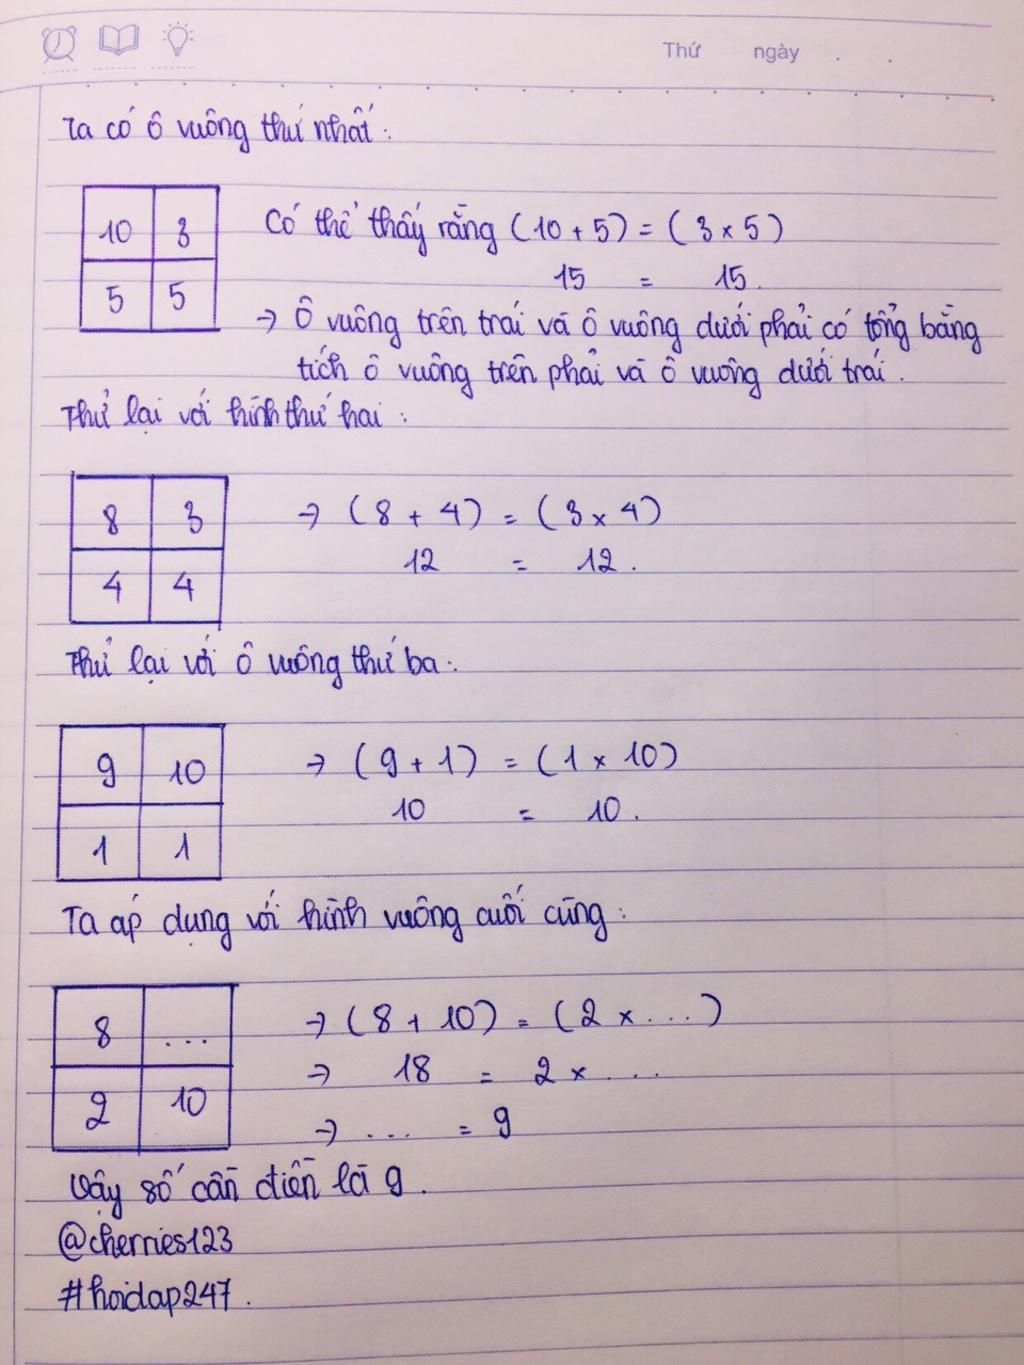 Thứ ngày . .
Ta có ô vuông thứ nhất:
10 3
Có thể thấy rằng (10 + 5) = (3 x 5)
15 = 15.
5 5
→ Ô vuông trên trái và ô vuông dưới phải có tổng bằng
tích ô vuông trên phải và ô vuông dưới trái.
Thử lại với hình thứ hai:
8 3
→ (8 + 4) = (3 x 4)
12 = 12.
4 4
Thử lại với ô vuông thứ ba:
9 10
→ (9 + 1) = (1 x 10)
10 = 10.
1 1
Ta áp dụng với hình vuông cuối cùng:
8 ...
→ (8 + 10) = (2 x ...)
→ 18 = 2 x ...
2 10
→ ... = 9
Vậy số cần điền là 9.
@cherries123
#hoidap247.